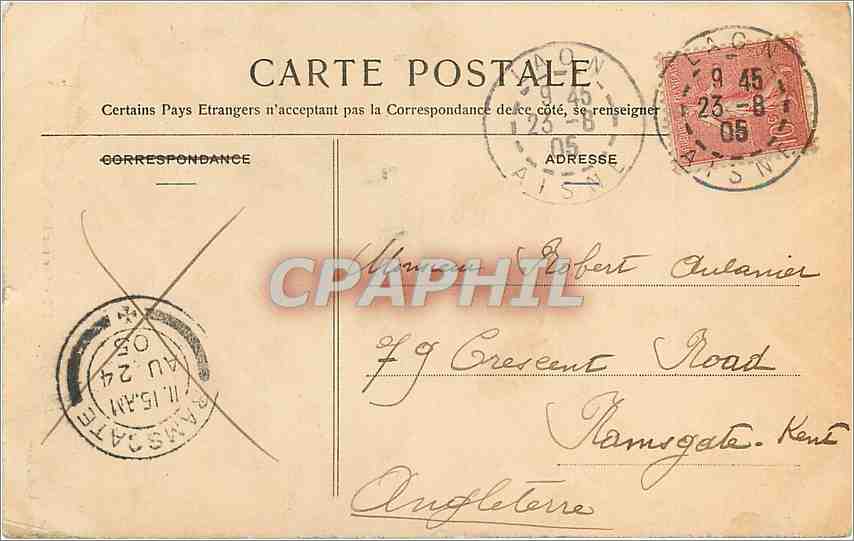 CARTE POSTALE
Certains Pays Etrangers n'acceptant pas la Correspondance de ce côté, se renseigner
CORRESPONDANCE
ADRESSE
LAON
9 45
23 -8
05
AISNE
LAON
9 45
23 -8
05
AISNE
CPAPHIL
Monsieur Robert Aulanier
79 Crescent Road
Ramsgate - Kent
Angleterre
RAMSGATE
11.15.AM
AU 24
05